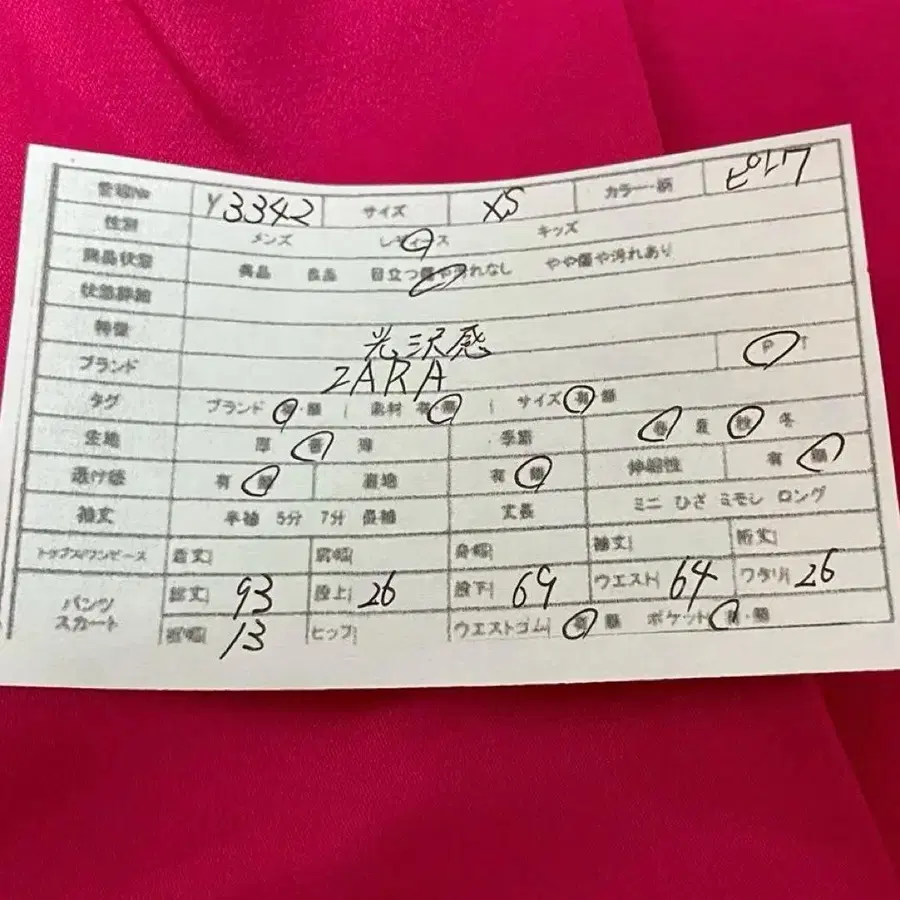 管理No Y3342 サイズ XS カラー・柄 ピンク
性別 メンズ レディース キッズ
商品状態 美品 良品 目立つ傷や汚れなし やや傷や汚れあり
状態詳細
特徴 光沢感
ブランド ZARA P T
タグ ブランド 有・無 | 素材 有・無 | サイズ 有・無
生地 厚 普 薄 季節 春 夏 秋 冬
透け感 有 無 裏地 有 無 伸縮性 有 無
袖丈 半袖 5分 7分 長袖 丈長 ミニ ひざ ミモレ ロング
トップス/ワンピース 着丈 肩幅 身幅 袖丈 裄丈
パンツ スカート 総丈 93 股上 26 股下 69 ウエスト 64 ワタリ 26
裾幅 13 ヒップ ウエストゴム 有 無 ポケット 有・無